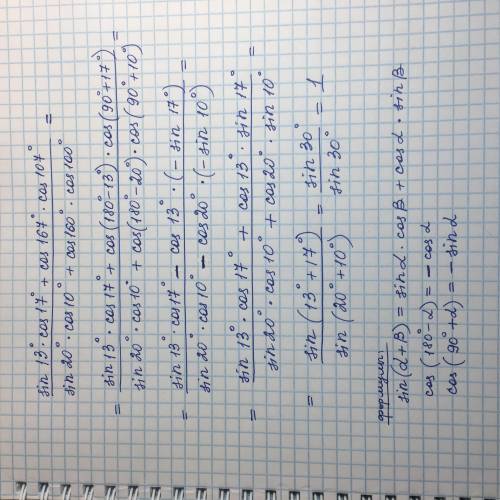 sin 13° · cos 17° + cos 167° · cos 107°
sin 20° · cos 10° + cos 160° · cos 100° =
= sin 13° · cos 17° + cos (180°-13°) · cos (90°+17°)
sin 20° · cos 10° + cos (180°-20°) · cos (90°+10°) =
= sin 13° · cos 17° - cos 13° · (- sin 17°)
sin 20° · cos 10° - cos 20° · (- sin 10°) =
= sin 13° · cos 17° + cos 13° · sin 17°
sin 20° · cos 10° + cos 20° · sin 10° =
= sin (13° + 17°) = sin 30° = 1
sin (20° + 10°) sin 30°
формулы:
sin (α + β) = sin α · cos β + cos α · sin β
cos (180° - α) = - cos α
cos (90° + α) = - sin α